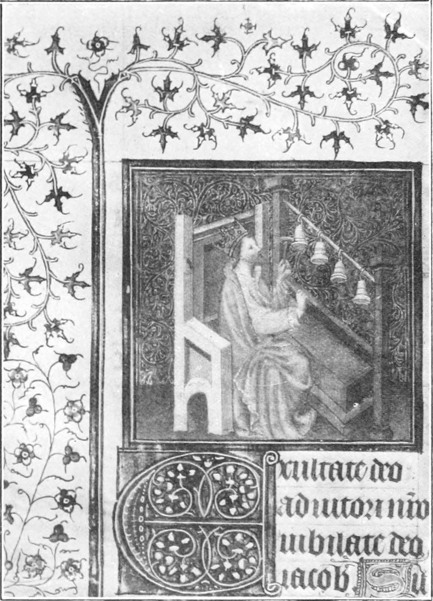 Exultate deo
adiutori nr̄o
iubilate deo
iacob Su